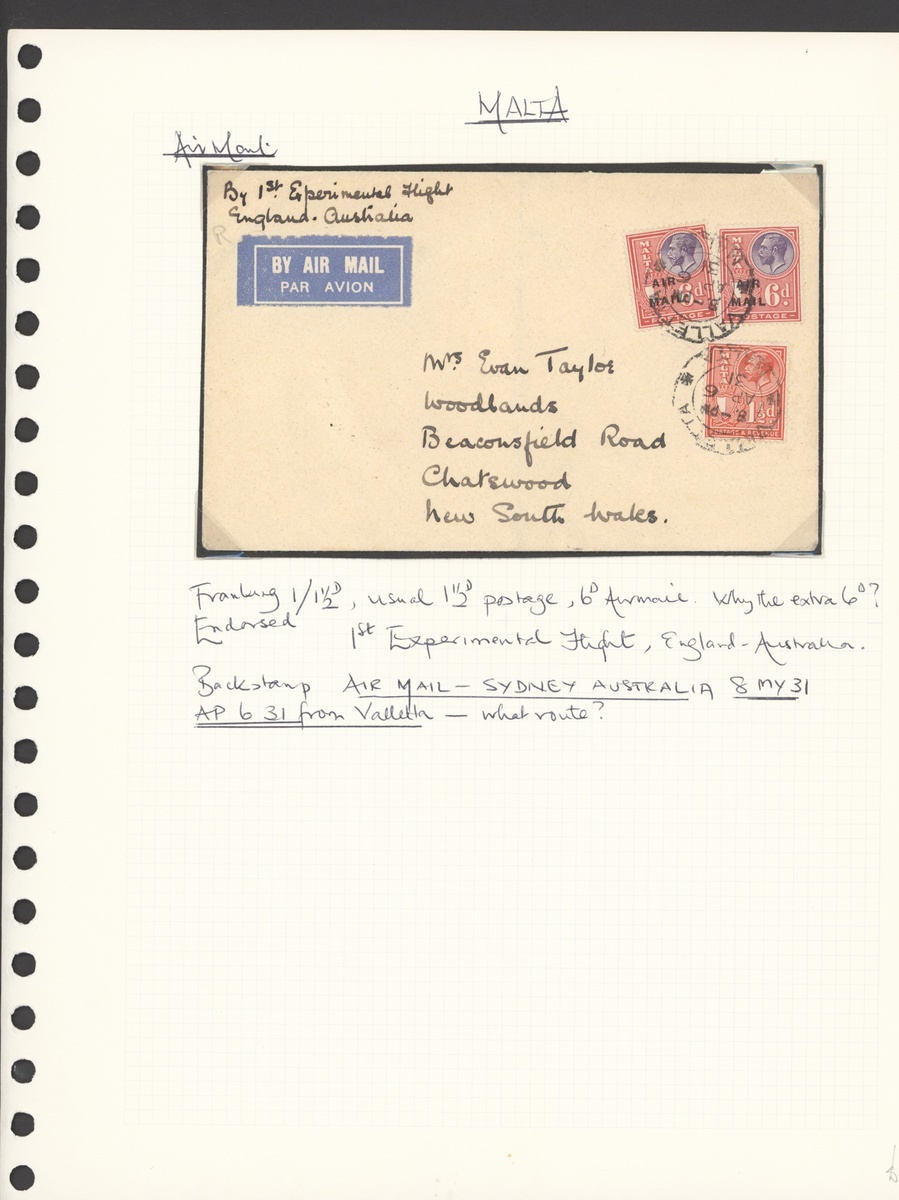 MALTA
Air Mail
By 1st. Experimental Flight
England - Australia
R
BY AIR MAIL
PAR AVION
MALTA
AIR MAIL
6d
POSTAGE
MALTA
AIR MAIL
6d
POSTAGE
VALLETTA
MALTA
1½d
POSTAGE & REVENUE
8 - PM
6 AP
31
Mrs. Evan Taylor
Woodlands
Beaconsfield Road
Chatswood
New South Wales.
Franking 1/1½D, usual 1½D postage, 6D Airmail. Why the extra 6D?
Endorsed 1st Experimental Flight, England - Australia.
Backstamp AIR MAIL - SYDNEY AUSTRALIA 8 MY 31
AP 6 31 from Valletta - what route?